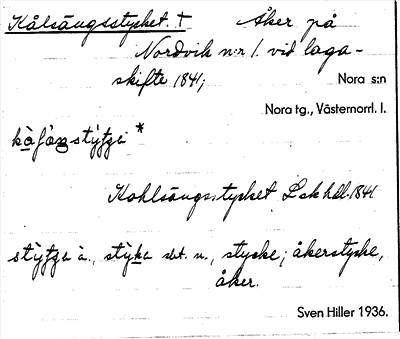 Kålsängsstycket † Åker på
Nordvik n:r 1. vid laga-
skifte 1841;
Nora s:n
Nora tg., Västernorrl. l.
Kohlsängsstycket Lsk hdl. 1841
det. n., stycke; åkerstycke,
åker.
Sven Hiller 1936.